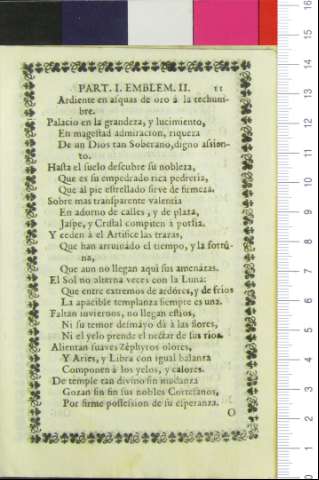 PART. I. EMBLEM. II. 11
Ardiente en ascuas de oro à la techum-
bre.
Palacio en la grandeza, y lucimiento,
En magestad admiracion, riqueza
De un Dios tan Soberano, digno assien-
to.
Hasta el suelo descubre su nobleza,
Que es su empedrado rica pedreria,
Que al pie estrellado sirve de firmeza.
Sobre mas transparente valentia
En adorno de calles, y de plaza,
Jaspe, y Cristal compiten à porfia.
Y ceden à el Artifice las trazas,
Que han arruinado el tiempo, y la fortu-
na,
Que aun no llegan aqui sus amenazas.
El Sol no alterna veces con la Luna:
Que entre extremos de ardores, y de frios
La apacible templanza siempre es una.
Faltan inviernos, no llegan estios,
Ni su temor desmayo dà à las flores,
Ni el yelo prende el nectar de sus rios.
Alientan suaves Zéphyros olores,
Y Aries, y Libra con igual balanza
Componen à los yelos, y calores.
De temple tan divino sin mudanza
Gozan sin fin sus nobles Cortesanos,
Por firme possession de su esperanza.
O
16
15
14
13
12
11
10
09
08
07
06
05
04
03
02
01
0